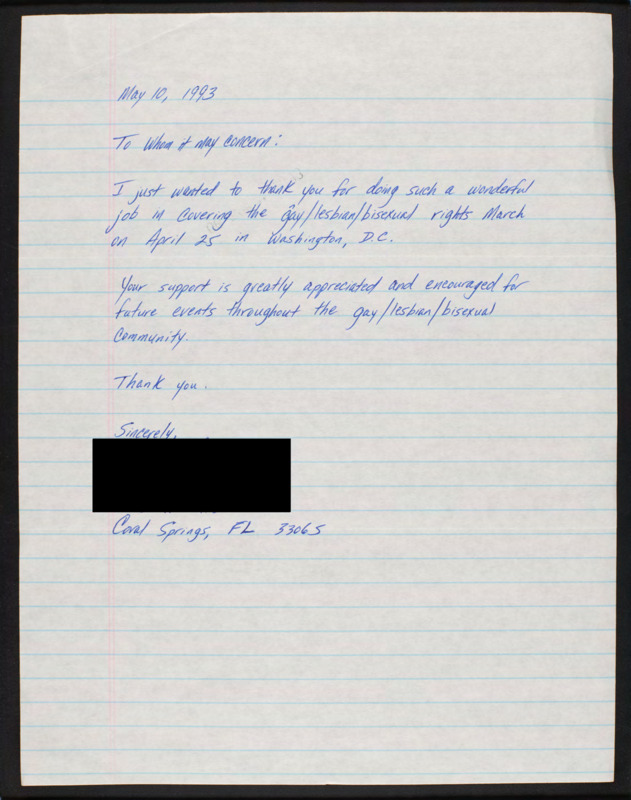 May 10, 1993
To Whom it may concern:
I just wanted to thank you for doing such a wonderful
job in covering the gay/lesbian/bisexual rights March
on April 25 in Washington, D.C.
Your support is greatly appreciated and encouraged for
future events throughout the gay/lesbian/bisexual
Community.
Thank you.
Sincerely,
Coral Springs, FL 33065